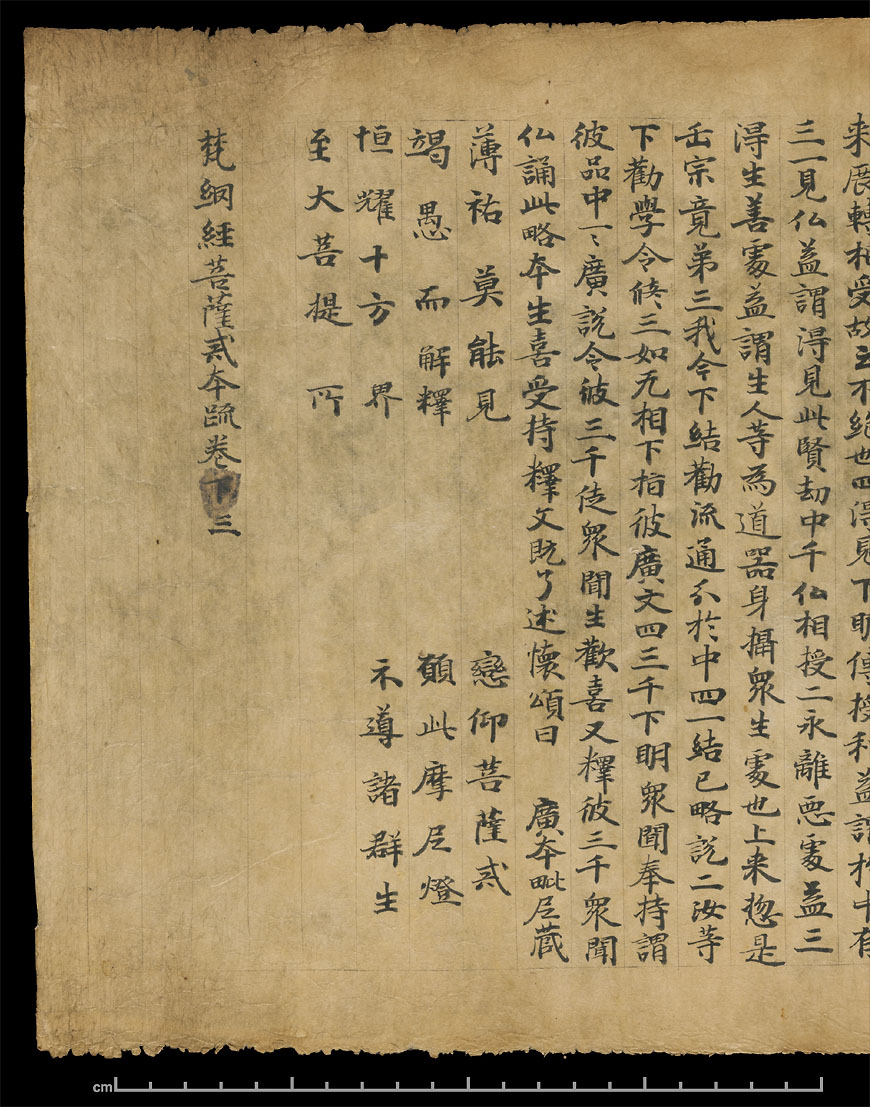 来展轉相受故云不絶也四得見下明傳授利益謂於中有
三一見仏益謂得見此賢劫中千仏相授二永離悪處益三
得生善處益謂生人等為道器身攝衆生處也上来惣是
壬宗竟第三我今下結勸流通分於中四一結已略説二汝等
下勸學令修三如无相下指彼廣文四三千下明衆聞奉持謂
彼品中一〻廣説令彼三千徒衆聞生歡喜又釋彼三千衆聞
仏誦此略夲生喜受持釋文既了述懷頌曰 廣夲毗尼蔵
薄祐莫能見 戀仰菩薩貳
竭愚而解釋 願此摩尼燈
恒耀十方界 示導諸群生
至大菩提所
梵網經菩薩貳夲䟽卷下三